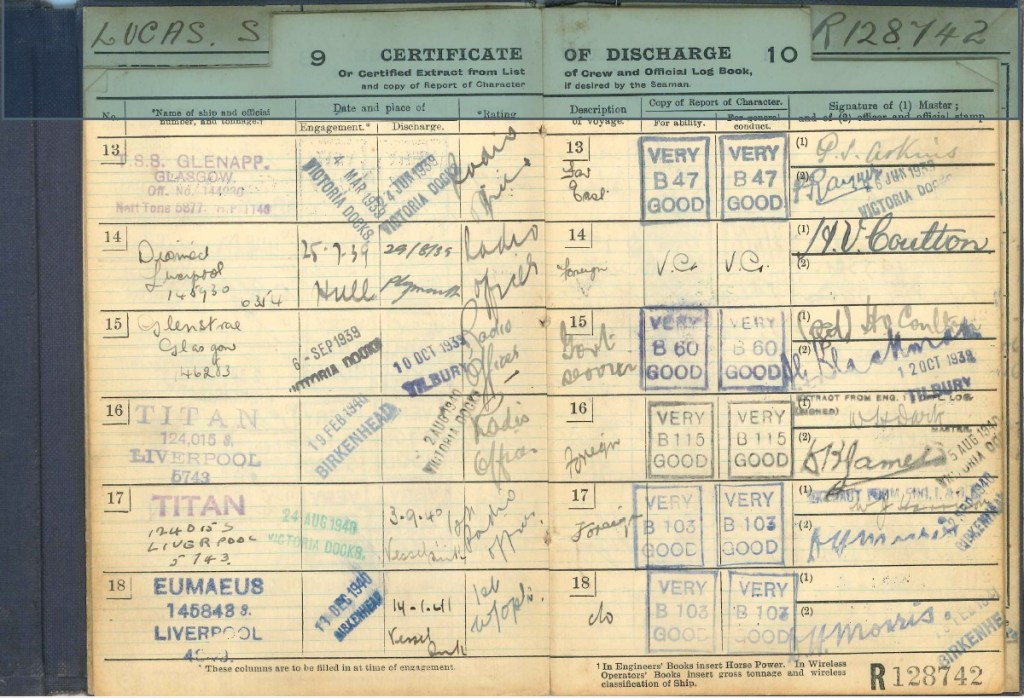 LUCAS. S
R128742
9 CERTIFICATE OF DISCHARGE 10
Or Certified Extract from List of Crew and Official Log Book,
and copy of Report of Character if desired by the Seaman.
No. *Name of ship and official number, and tonnage.†
Date and place of
Engagement.* Discharge.
*Rating
Description of voyage.
Copy of Report of Character.
For ability. For general conduct.
Signature of (1) Master; and of (2) officer and official stamp.
13
T.S.S. GLENAPP.
GLASGOW.
MAR 1939
VICTORIA DOCKS
24 JUN 1939
VICTORIA DOCKS
Radio
13
Far
East
VERY
B 47
GOOD
VERY
B 47
GOOD
(1)
(2)
26 JUN 1939
VICTORIA DOCKS
14
Diomed
Liverpool
145930
25.7.39
Hull
29/8/39
Plymouth
Radio
Officer
14
Foreign
V.G. V.G.
(1) H.V. Coulton
(2)
15
Glenstrae
Glasgow
146283
6 - SEP 1939
VICTORIA DOCKS
10 OCT 1939
TILBURY
Radio
Officer
15
VERY
B 60
GOOD
VERY
B 60
GOOD
(1)
(2)
12 OCT 1939
TILBURY
16
TITAN
124,015 S.
LIVERPOOL
5743
19 FEB 1940
BIRKENHEAD.
2 AUG 1940
VICTORIA DOCKS
Radio
Officer
16
Foreign
VERY
B 115
GOOD
VERY
B 115
GOOD
(1)
(2)
17
TITAN
124015 S
LIVERPOOL
5743.
24 AUG 1940
VICTORIA DOCKS.
3-9-40
Vessel sunk
Radio
17
Foreign
VERY
B 103
GOOD
VERY
B 103
GOOD
(1)
(2)
18
EUMAEUS
145848 S.
LIVERPOOL
13 DEC 1940
BIRKENHEAD
14-1-41
Vessel
sunk
1st
18
do
VERY
B 103
GOOD
VERY
B 103
GOOD
(1)
(2)
BIRKENHEAD
* These columns are to be filled in at time of engagement.
† In Engineers' Books insert Horse Power. In Wireless
Operators' Books insert gross tonnage and wireless
classification of Ship.
R 128742